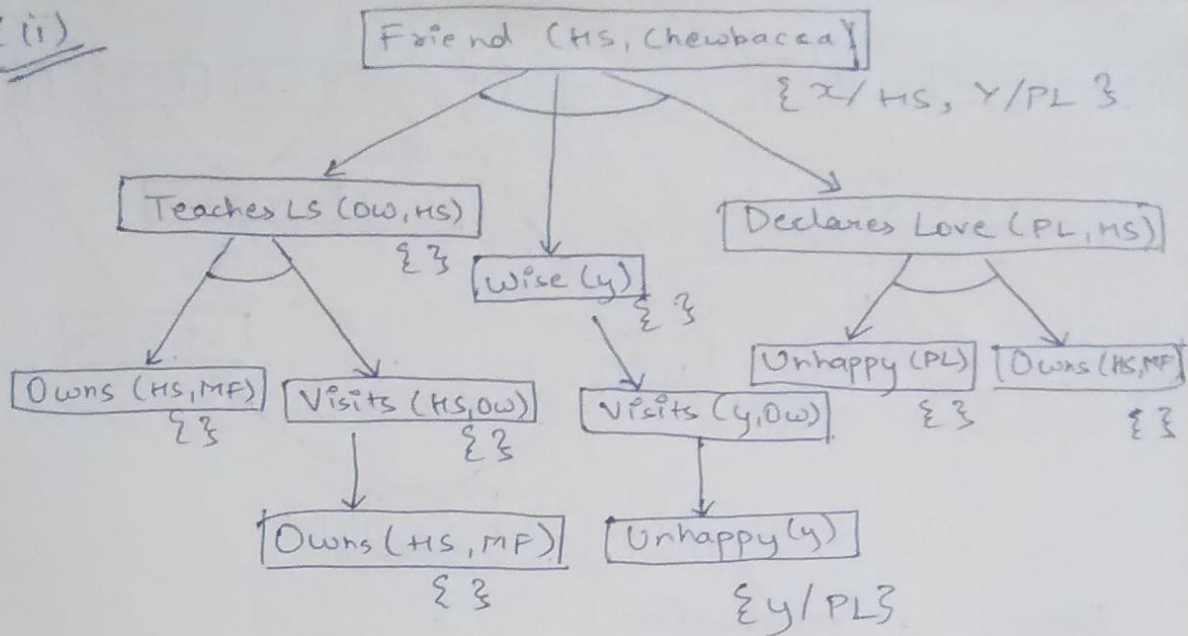 (i)
Friend (HS, Chewbacca)
{x/HS, Y/PL}
Teaches LS (OW, HS)
{ }
Wise (y)
{ }
Declares Love (PL, HS)
Owns (HS, MF)
{ }
Visits (HS, OW)
{ }
Visits (y, OW)
Unhappy (PL)
{ }
Owns (HS, MF)
{ }
Owns (HS, MF)
{ }
Unhappy (y)
{y/PL}